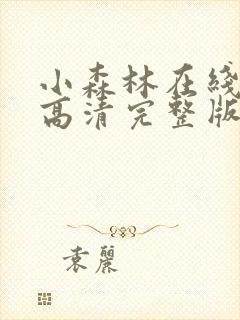 小森林在綫
高清完整版
袁麗